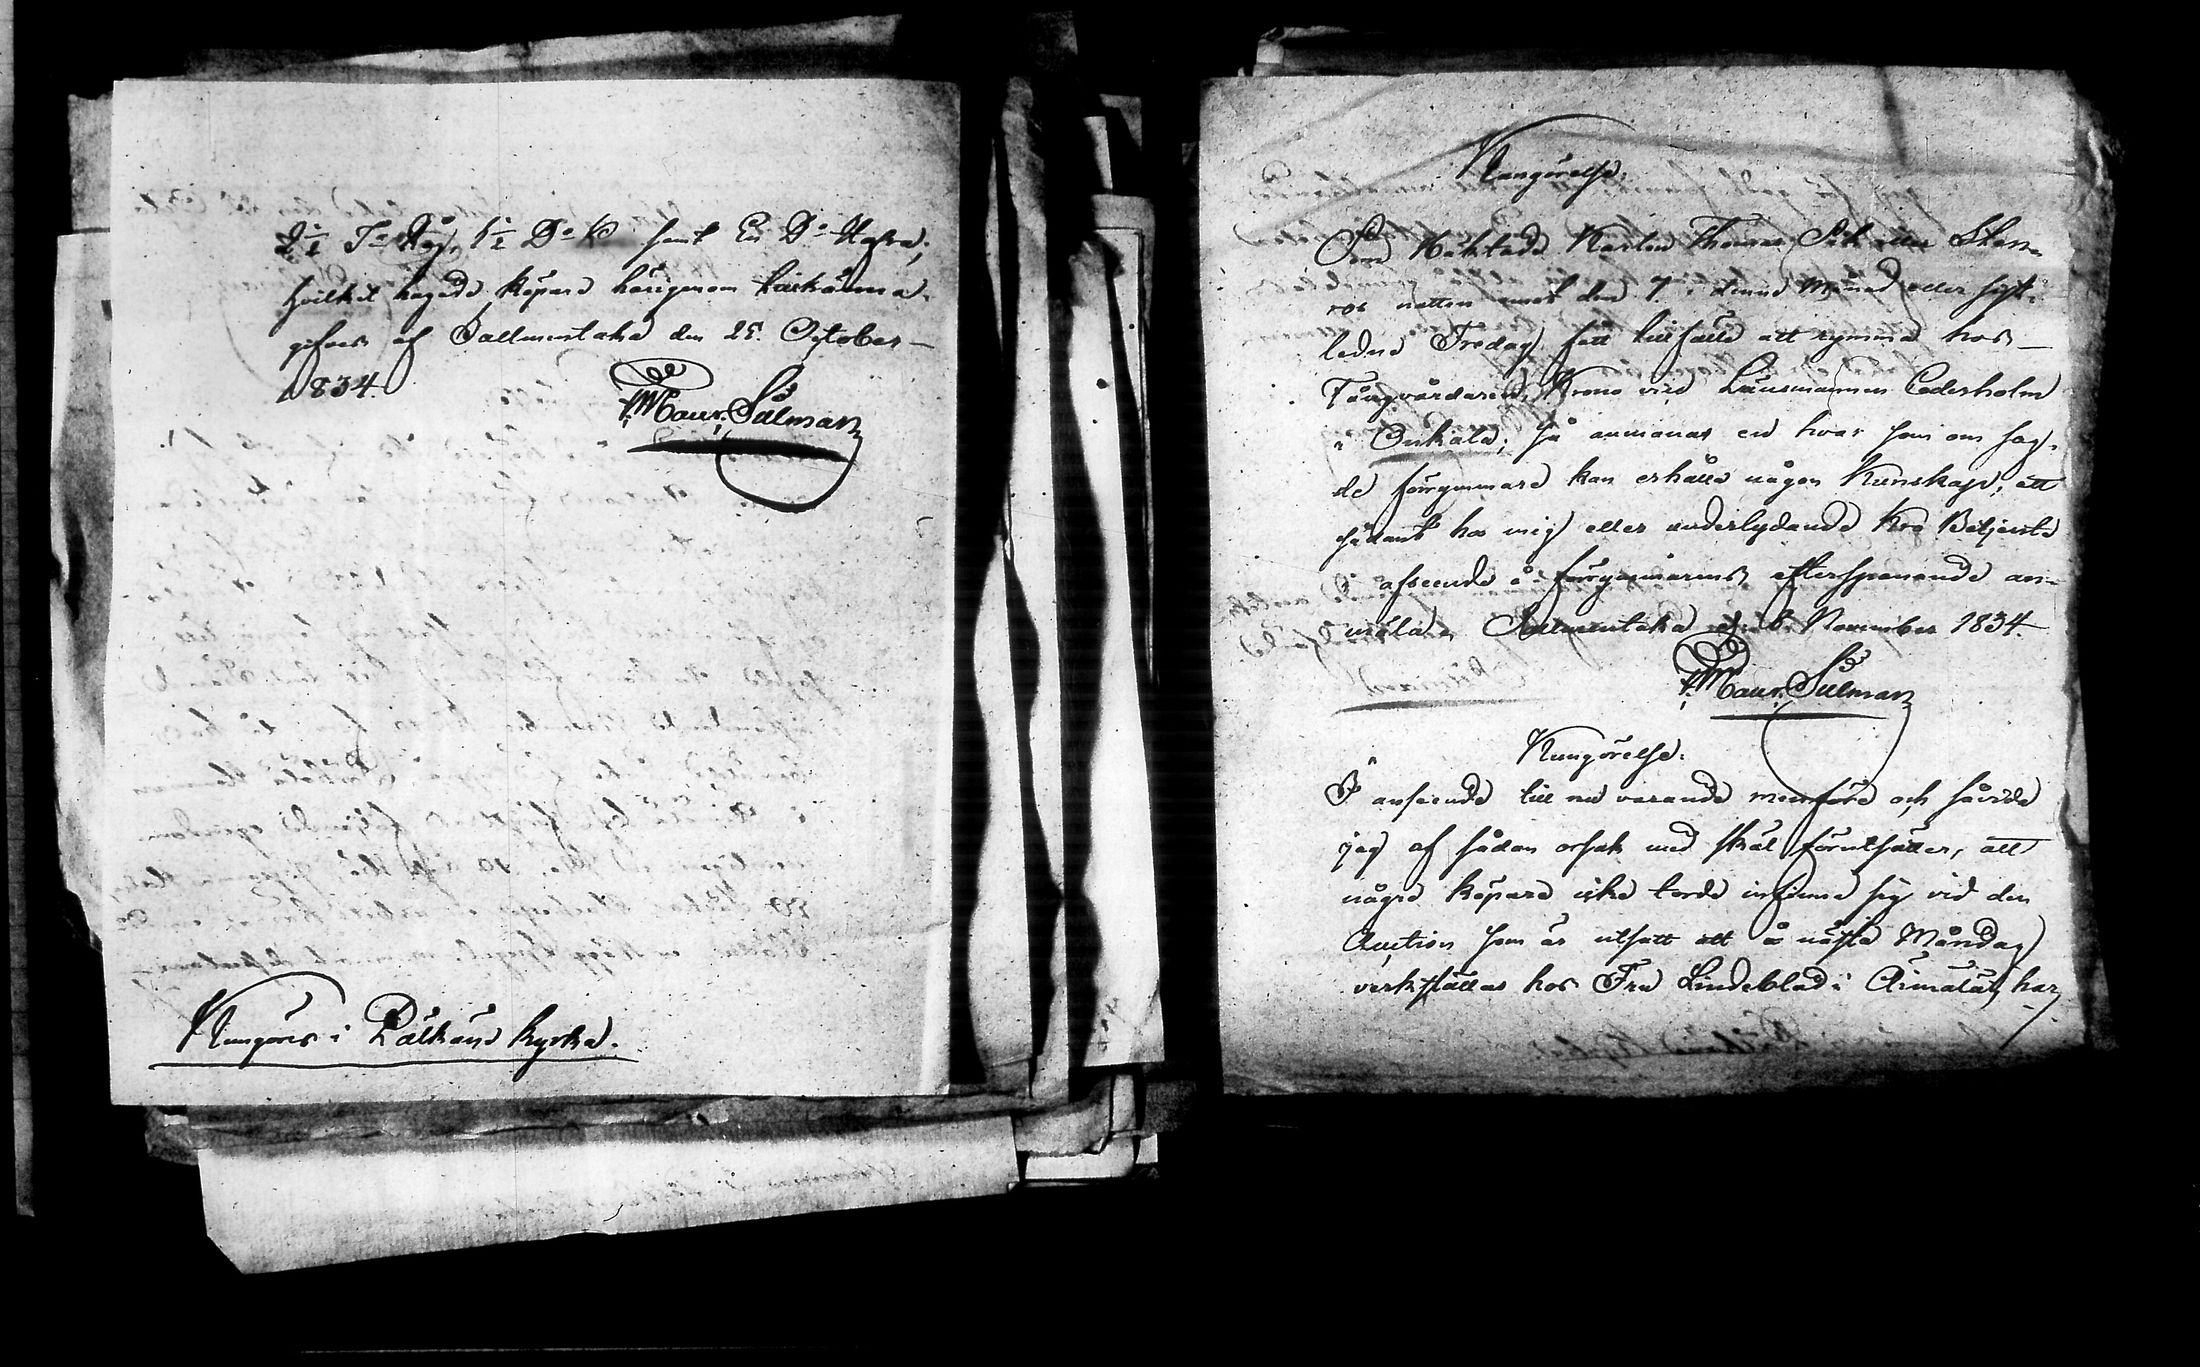 2½ T:a Råg, 1½ D:o K samt En D:o Hafra;
hvilket hugade köpare härigenom kärkänna-
gifves af Sallmentaka den 25. October –
1834.
Maur. Silman
Kungöres i Pälkäne kyrka.
Kungörelse.
Som Häktade Karlen Thomas eller Skan-
ros natten emot den 7. i denne Månad eller sist-
ledne Fredag fått tillfälle att rymma hos –
Fångvårdaren, Krono vice Länsmannen Cederholm
i Onkala; så anmanas en hvar som om sag-
de förrymmare kan erhålla någon Kunskap, att
sådant hos mig eller underlydande Kro Betjente
i afseende å förrymmarens efterspanande an-
mäla. Sallmentaka d. 8 November 1834.
Maur. Silman
Kungörelse.
I anseende till nu varande menföre och såvida
jag af sådan orsak med skäl förutsätter, att
några köpare icke torde infinna sig vid den
Auction som är utsatt att å nästa Måndag
verkställas hos Fru Lindeblad i Äimälä, har